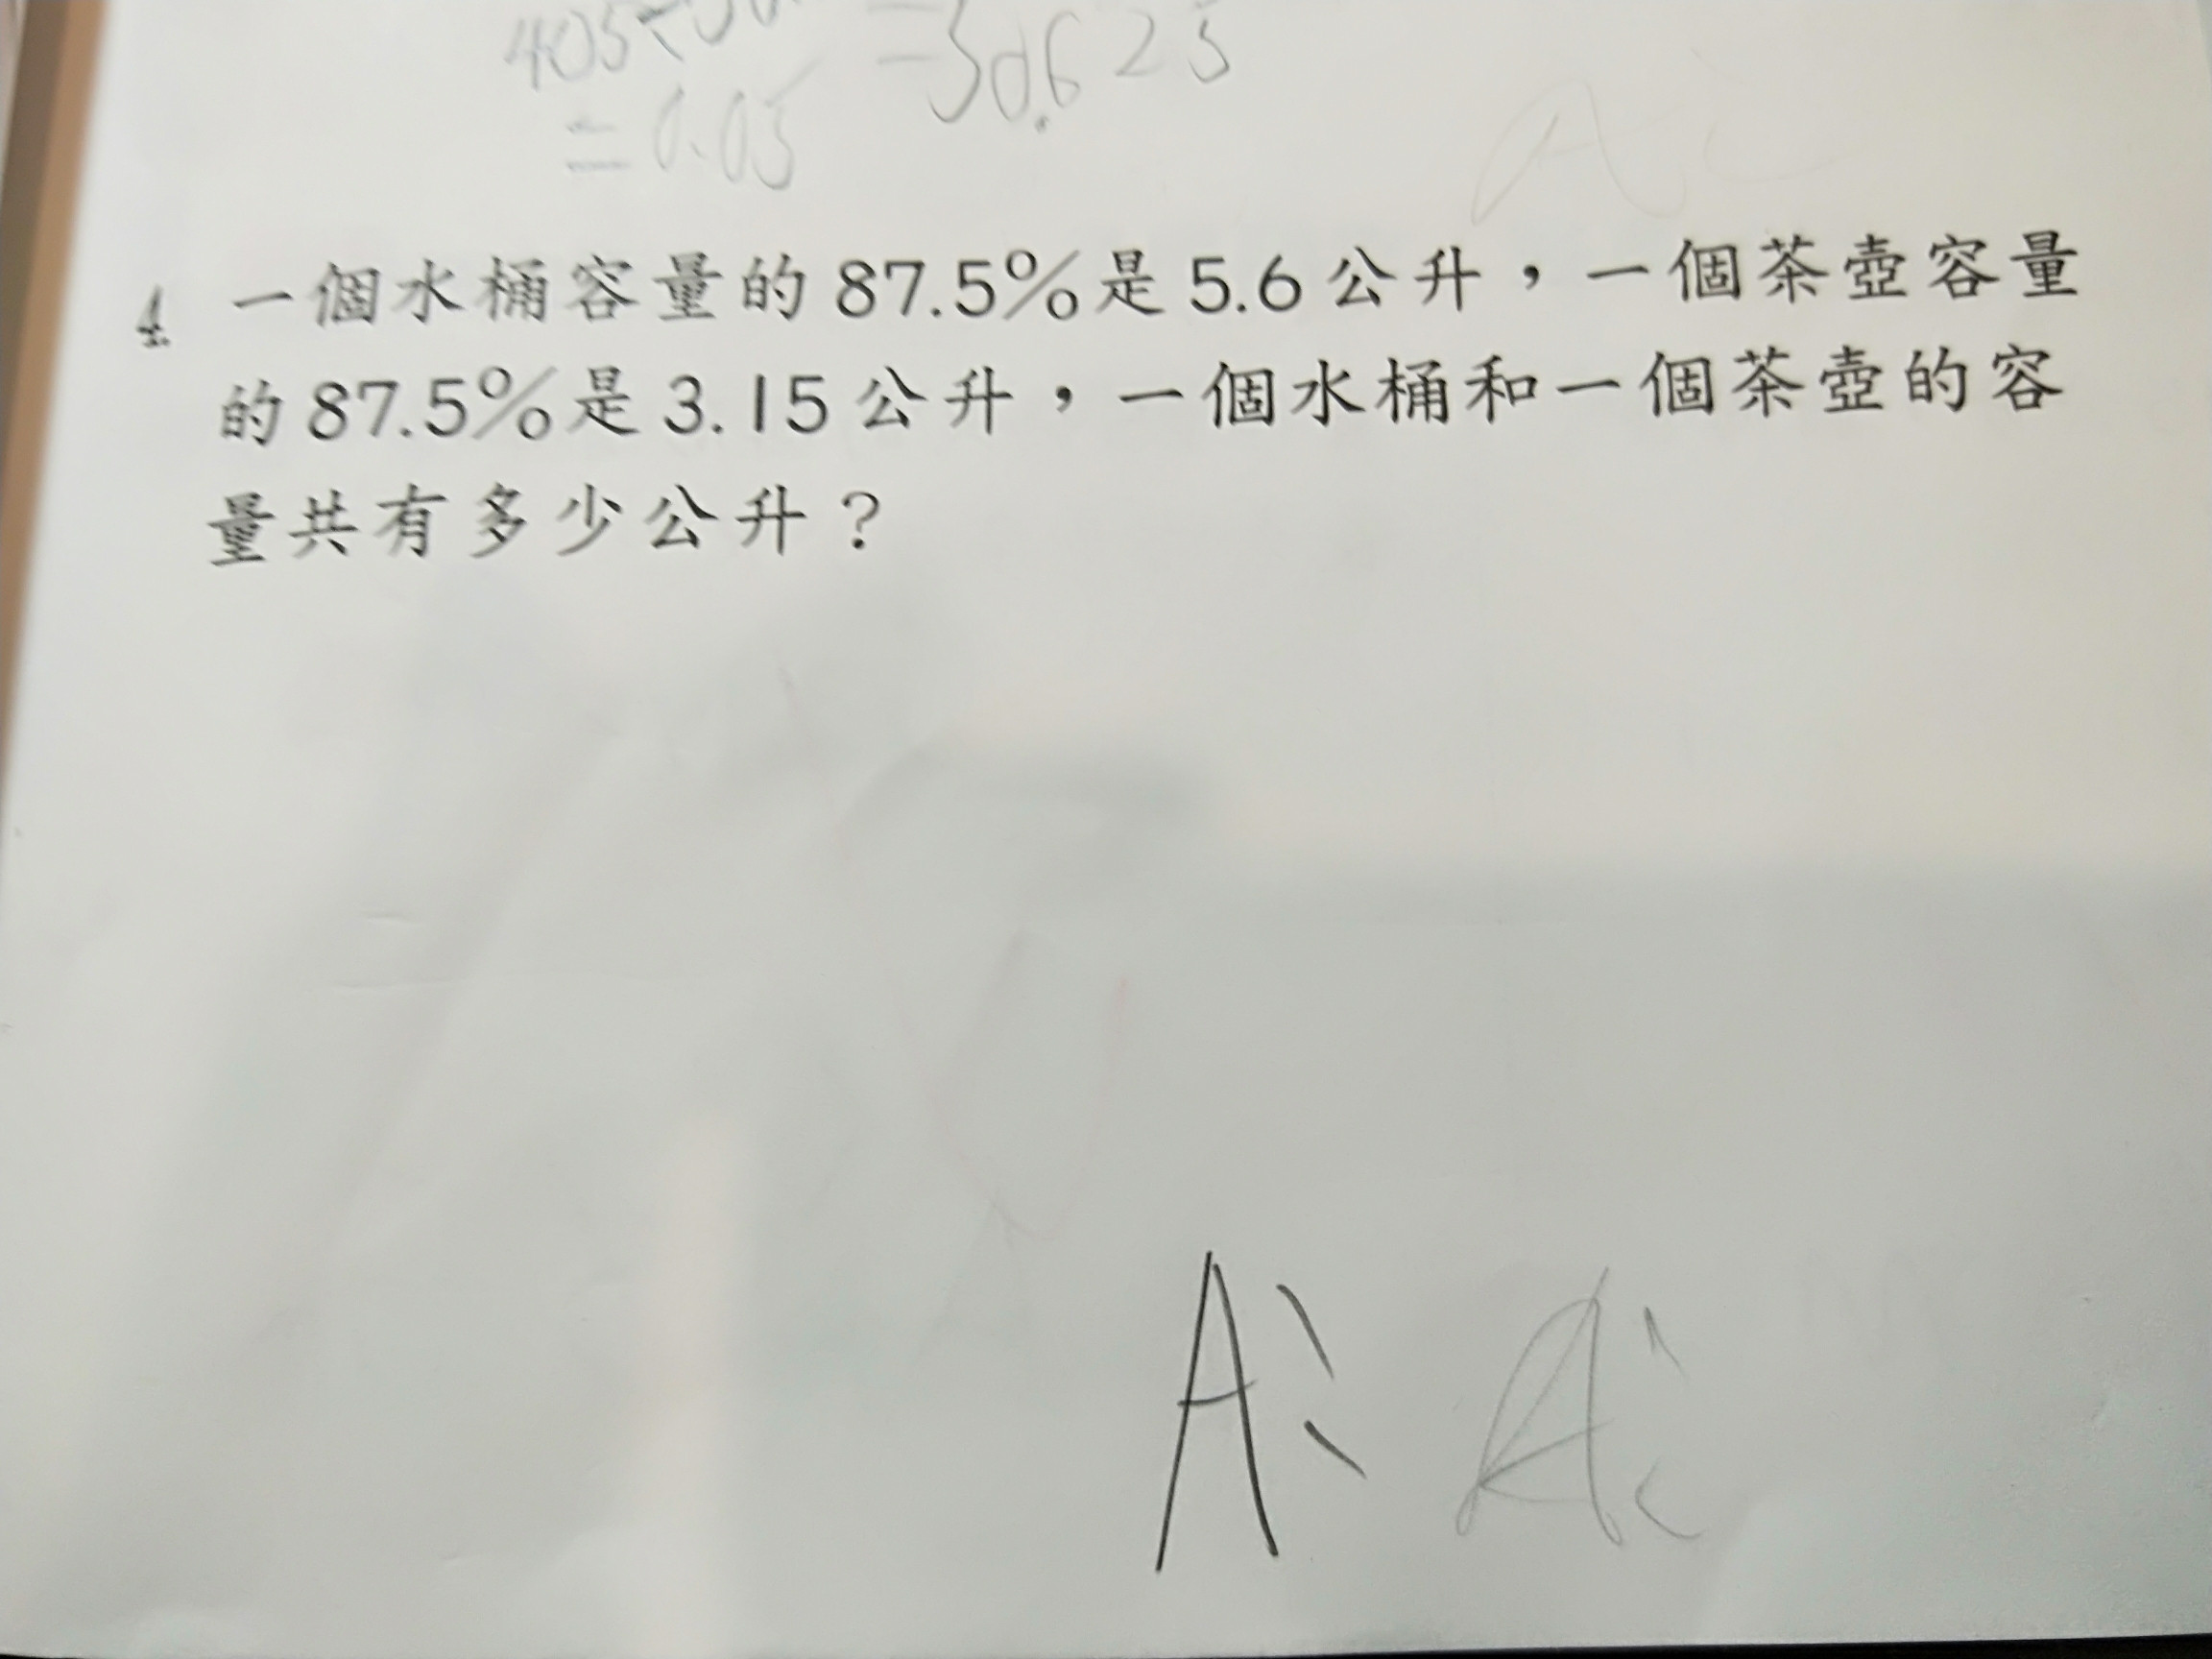 =30.625
=0.05
4. 一個水桶容量的87.5%是5.6公升，一個茶壺容量
的87.5%是3.15公升，一個水桶和一個茶壺的容
量共有多少公升？
A: A: